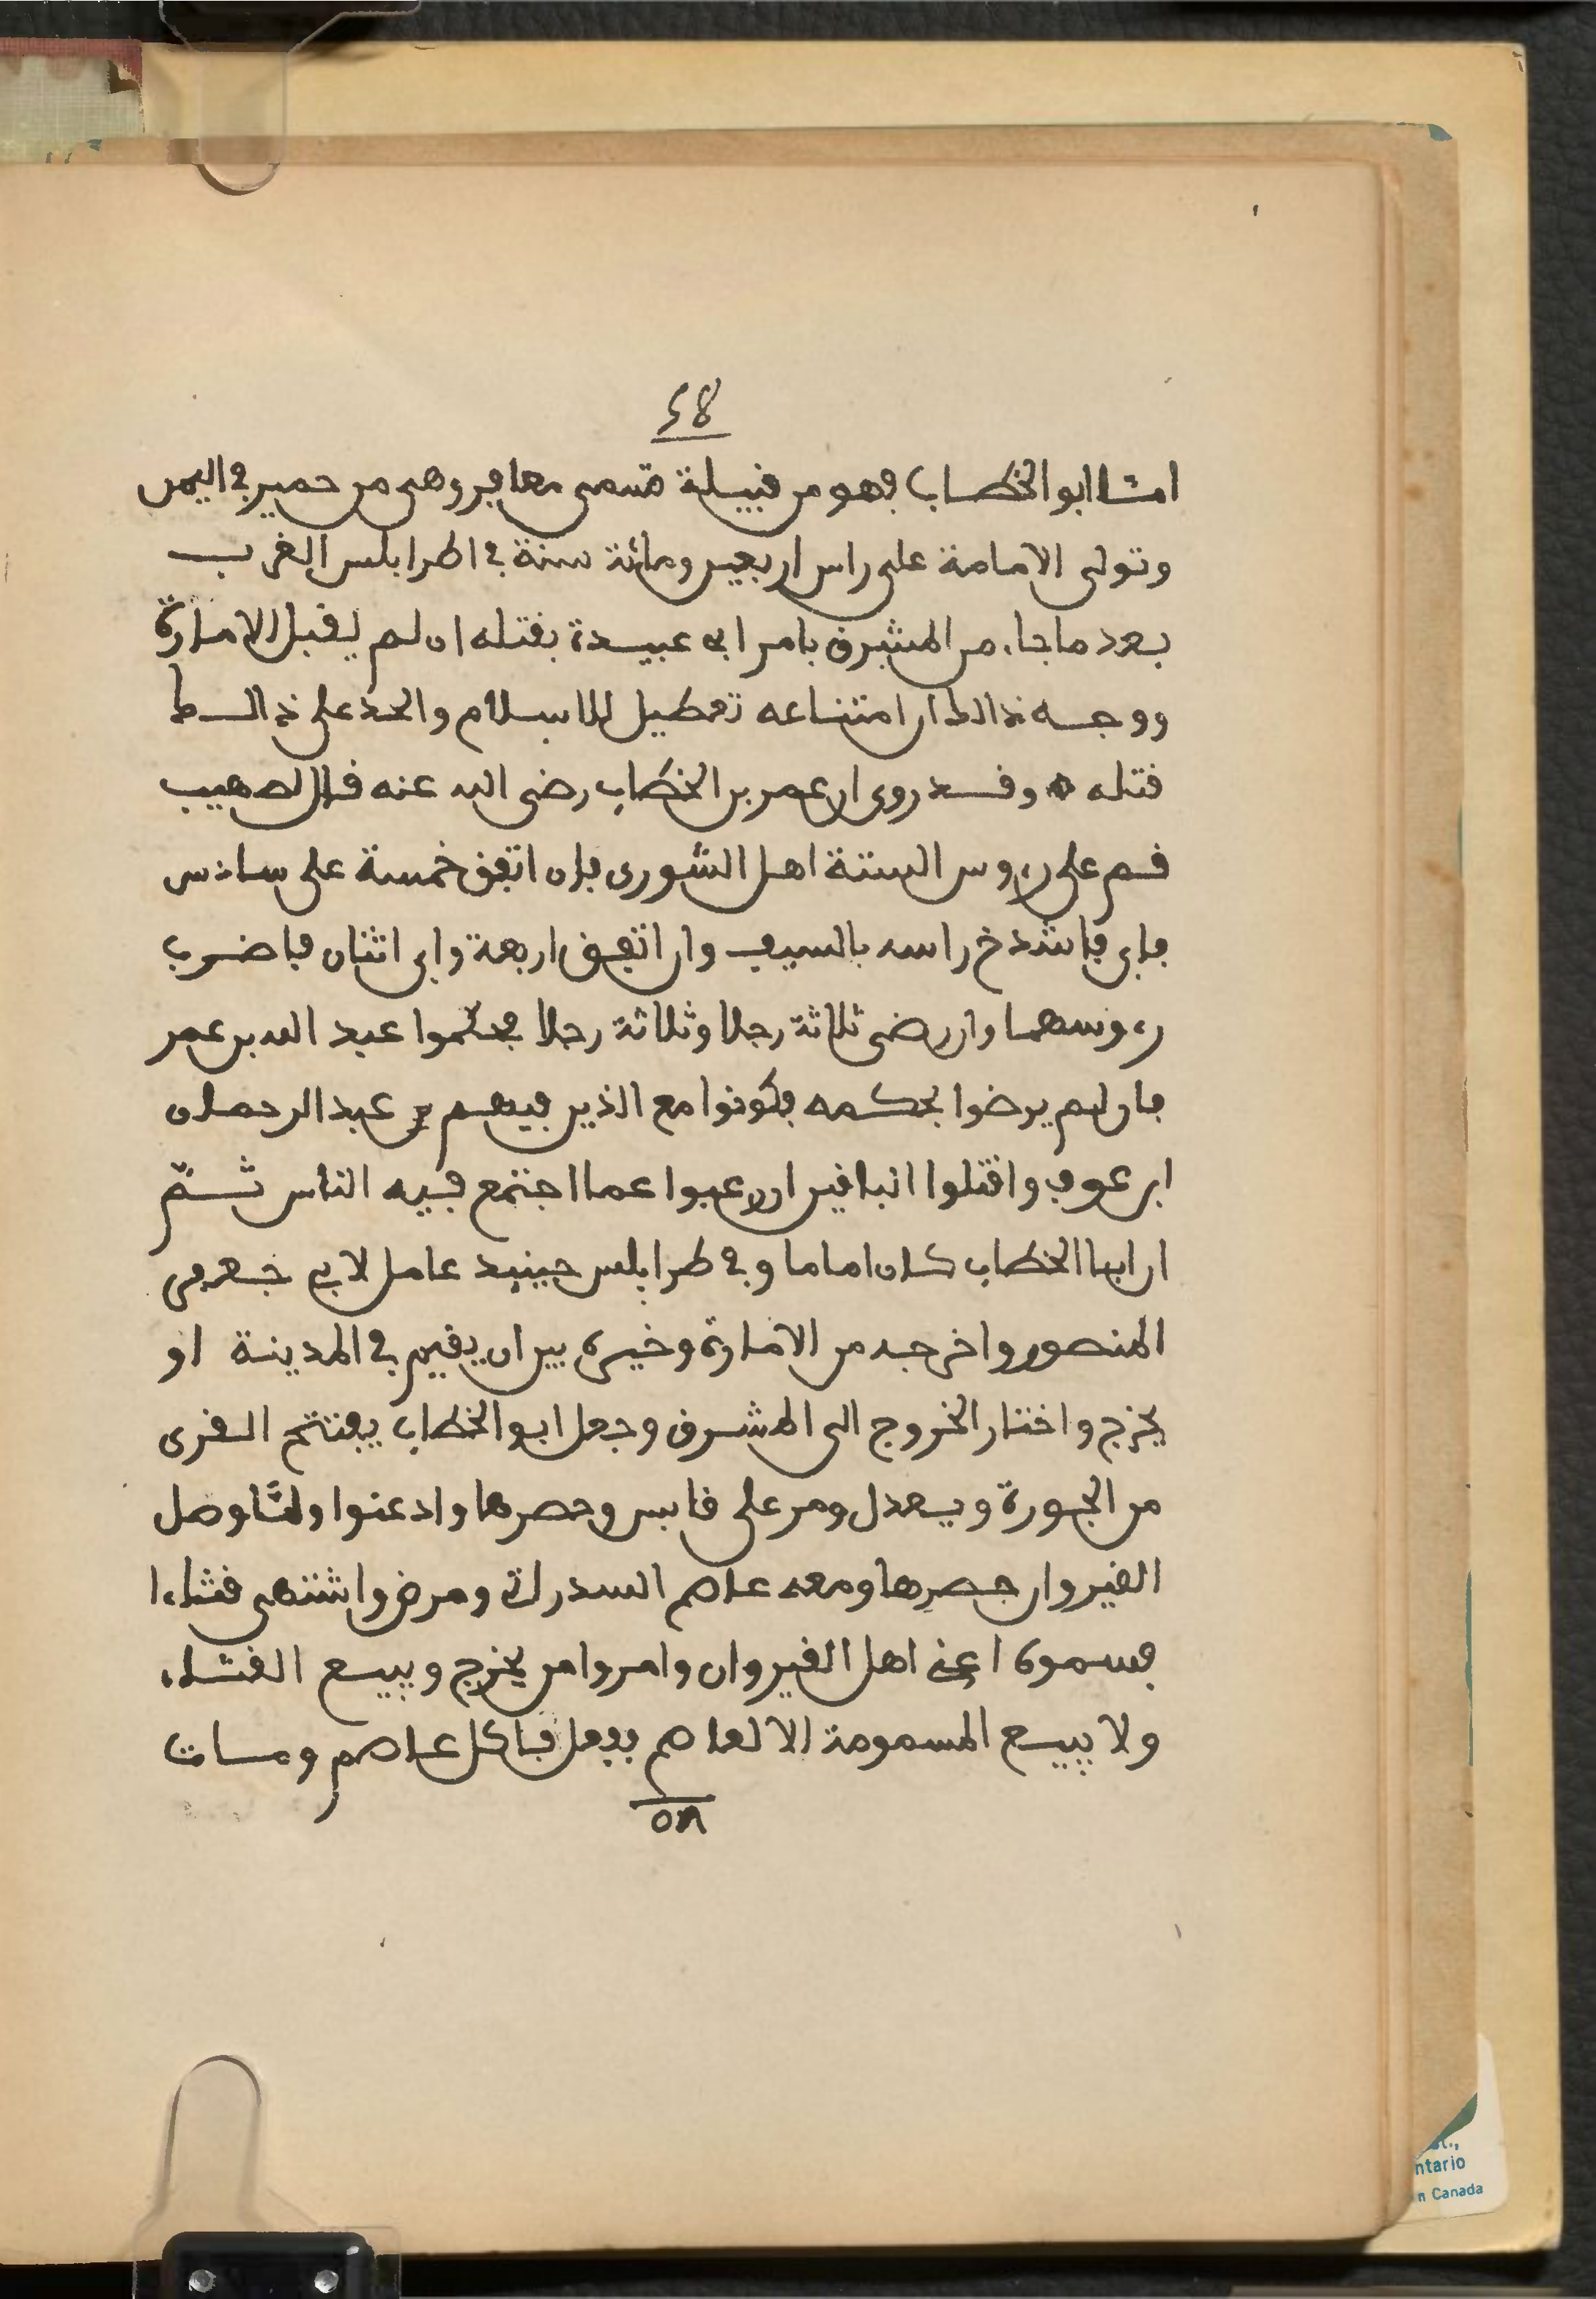 ٤٨
امّا ابو الخطاب فهو من قبيلة تسمى معافر وهي من حمير في اليمن
وتولى الامامة على راس اربعين ومائة سنة في اطرابلس الغرب
بعد ما جاء من المشرق بامر ابي عبيدة بقتله ان لم يقبل الامارة
ووجه ذالك ان امتناعه تعطيل للاسلام والحد على ذالك
قتله وقد روى ان عمر بن الخطاب رضي الله عنه قال لصهيب
قم على رءوس الستة اهل الشورى فان اتفق خمسة على سادس
فابى فاشدخ راسه بالسيف وان اتفق اربعة وابى اثنان فاضرب
رءوسهما وان رضى ثلاثة رجلا وثلاثة رجلا فحكّموا عبد الله بن عمر
فان لم يرضوا بحكمه فكونوا مع الذين فيهم عبد الرحمان
ابن عوف واقتلوا الباقين ان رغبوا عما اجتمع فيه الناس ثمّ
ان ابا الخطاب كان اماما وفي طرابلس حينيد عامل لابي جعفر
المنصور واخرجه من الامارة وخيره بين ان يقيم في المدينة او
يخرج واختار الخروج الى المشرق وجعل ابو الخطاب يفتتح القرى
من الجورة ويعدل ومر على قابس وحصرها وادعنوا ولمّا وصل
القيروان حصرها ومعه عاصم السدراتي ومرض واشتهى قثاءا
فسموه اعني اهل القيروان وامروا من يخرج ويبيع القثاء
ولا يبيع المسمومة الا لعاصم ففعل فاكل عاصم ومات
٥٨
ntario
n Canada